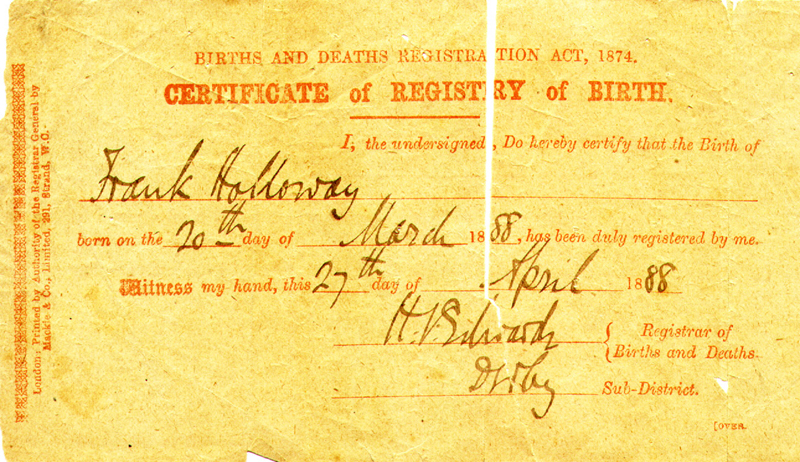 BIRTHS AND DEATHS REGISTRATION ACT, 1874.
CERTIFICATE of REGISTRY of BIRTH.
I, the undersigned, Do hereby certify that the Birth of
Frank Holloway
born on the 20th day of March 1888, has been duly registered by me.
Witness my hand, this 27th day of April 1888
H. Edwards { Registrar of
{ Births and Deaths.
Derby Sub-District.
[OVER.
London: Printed by Authority of the Registrar General by
Mackie & Co., Limited, 291, Strand, W.C.